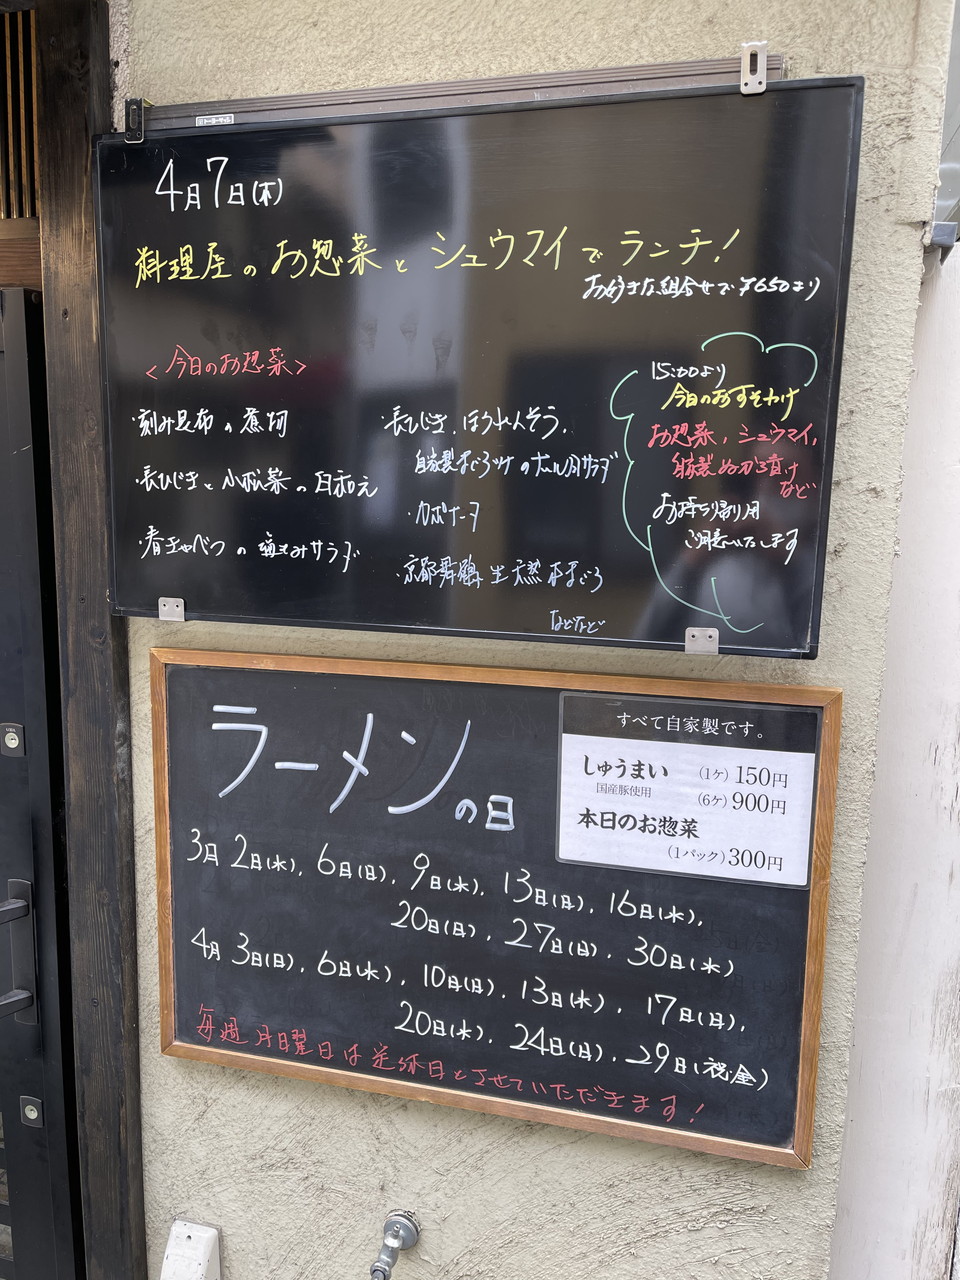 4月7日(木)
料理屋のお惣菜とシュウマイでランチ!
お好きな組合せで¥650より
<今日のお惣菜>
・刻み昆布の煮物
・長ひじきと小松菜の白和え
・春キャベツの塩もみサラダ
・長ひじき、ほうれんそう、
自家製まぐろツナのサラダ
・カポナータ
・京都舞鶴 生天然本まぐろ
などなど
15:00より
今日のおすそわけ
お惣菜、シュウマイ、
自家製ぬか漬け
など
お持ち帰り用
ご用意いたします
ラーメンの日
すべて自家製です。
しゅうまい (1ケ) 150円
国産豚使用 (6ケ) 900円
本日のお惣菜
(1パック) 300円
3月 2日(水), 6日(日), 9日(水), 13日(日), 16日(水),
20日(日), 27日(日), 30日(水)
4月 3日(日), 6日(水), 10日(日), 13日(水), 17日(日),
20日(水), 24日(日), 29日(祝・金)
毎週月曜日は定休日とさせていただきます!